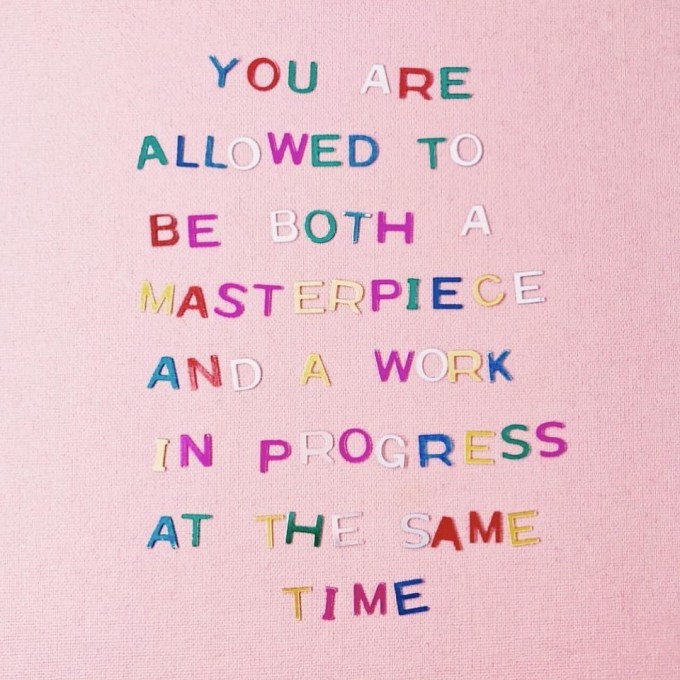 YOU ARE
ALLOWED TO
BE BOTH A
MASTERPIECE
AND A WORK
IN PROGRESS
AT THE SAME
TIME